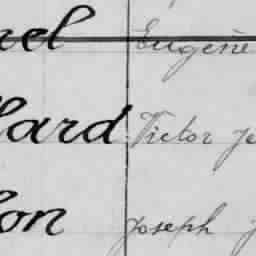 nel Eugène
lard Victor Je
lon Joseph J